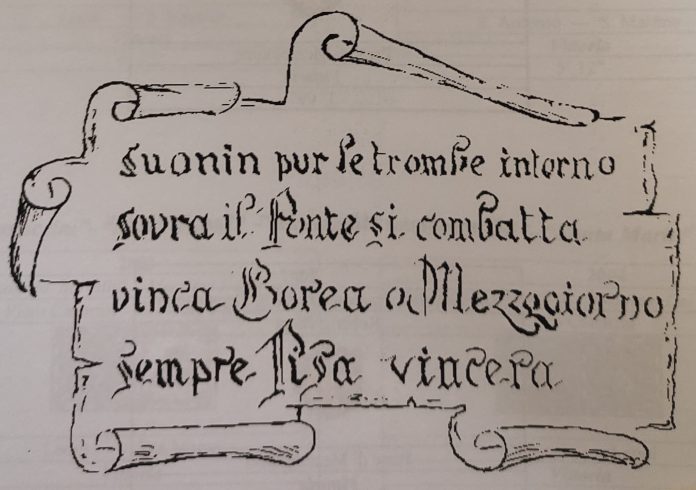 Suonin pur le trombe intorno
sovra il Ponte si combatta
vinca Borea o Mezzogiorno
sempre Pisa vincera